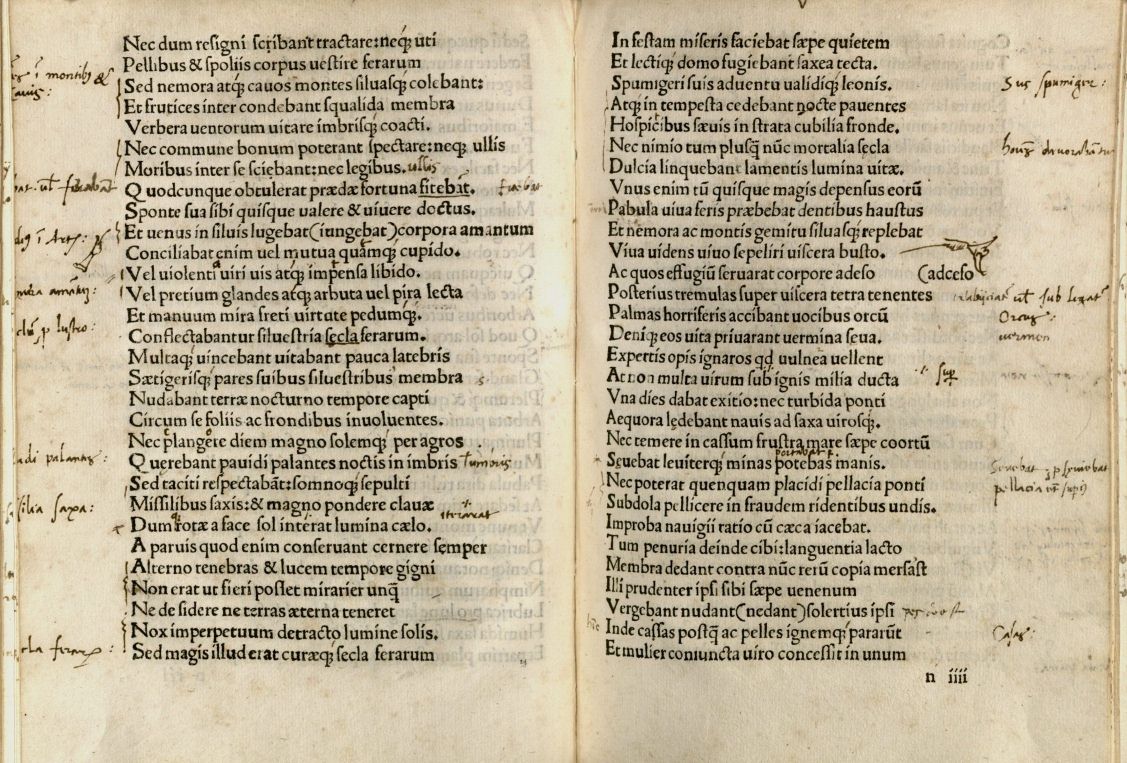 Nec dum resigni scribant tractare: neq; uti
Pellibus & spoliis corpus uestire ferarum
Sed nemora atq; cauos montes siluasq; colebant:
Et frutices inter condebant squalida membra
Verbera uentorum uitare imbrisq; coacti.
Nec commune bonum poterant spectare: neq; ullis
Moribus inter se sciebant: nec legibus. ullis
Quodcunque obtulerat prædæ fortuna sitebat.
Sponte sua sibi quisque ualere & uiuere doctus.
Et uenus in siluis lugebat (iungebat) corpora amantum
Conciliabat enim uel mutua quamq; cupido.
Vel uiolenti uiri uis atq; impensa libido.
Vel pretium glandes atq; arbuta uel pira lecta
Et manuum mira freti uirtute pedumq;.
Conflectabantur siluestria secla ferarum.
Multaq; uincebant uitabant pauca latebris
Sætigerisq; pares suibus siluestribus membra
Nudabant terræ nocturno tempore capti
Circum se foliis ac frondibus inuoluentes.
Nec plangore diem magno solemq; per agros
Querebant pauidi palantes noctis in imbris
Sed taciti respectabāt: somnoq; sepulti
Missilibus saxis: & magno pondere clauæ
Dum rotæ a face sol interat lumina cælo.
A paruis quod enim conseruant cernere semper
Alterno tenebras & lucem tempore gigni
Non erat ut fieri poslet mirarier unq̄
Ne de sidere ne terras æterna teneret
Nox imperpetuum detracto lumine solis.
Sed magis illud erat curæq; secla ferarum
In festam miseris faciebat sæpe quietem
Et lectiq; domo fugiebant saxea tecta.
Spumigeri suis aduentu ualidiq; leonis.
Atq; in tempesta cedebant nocte pauentes
Hospicibus sæuis in strata cubilia fronde.
Nec nimio tum plusq̄ nūc mortalia secla
Dulcia linquebant lamentis lumina uitæ.
Vnus enim tū quisque magis depensus eorū
Pabula uiua feris præbebat dentibus haustus
Et nemora ac montis gemitu siluasq; replebat
Viua uidens uiuo sepeliri uiscera busto.
Ac quos effugiū seruarat corpore adeso (adceso
Posterius tremulas super uiscera tetra tenentes
Palmas horriferis accibant uocibus orcū
Deniq; eos uita priuarant uermina seua.
Expertis opis ignaros qd uulnea uellent
At non multa uirum sub ignis milia ducta
Vna dies dabat exitio: nec turbida ponti
Aequora lędebant nauis ad saxa uirosq;.
Nec temere in cassum frustra mare sæpe coortū
Sęuebat leuiterq; minas potebas manis.
Nec poterat quenquam placidi pellacia ponti
Subdola pellicere in fraudem ridentibus undis.
Improba nauigii ratio cū cæca iacebat.
Tum penuria deinde cibi: languentia lacto
Membra dedant contra nūc rerū copia mersast
Illi prudenter ipsi sibi sæpe uenenum
Vergebant nudant (nedant) solertius ipsi
Inde cassas postq̄ ac pelles ignemq; pararūt
Et mulier coniuncta uiro concessit in unum
n iiii